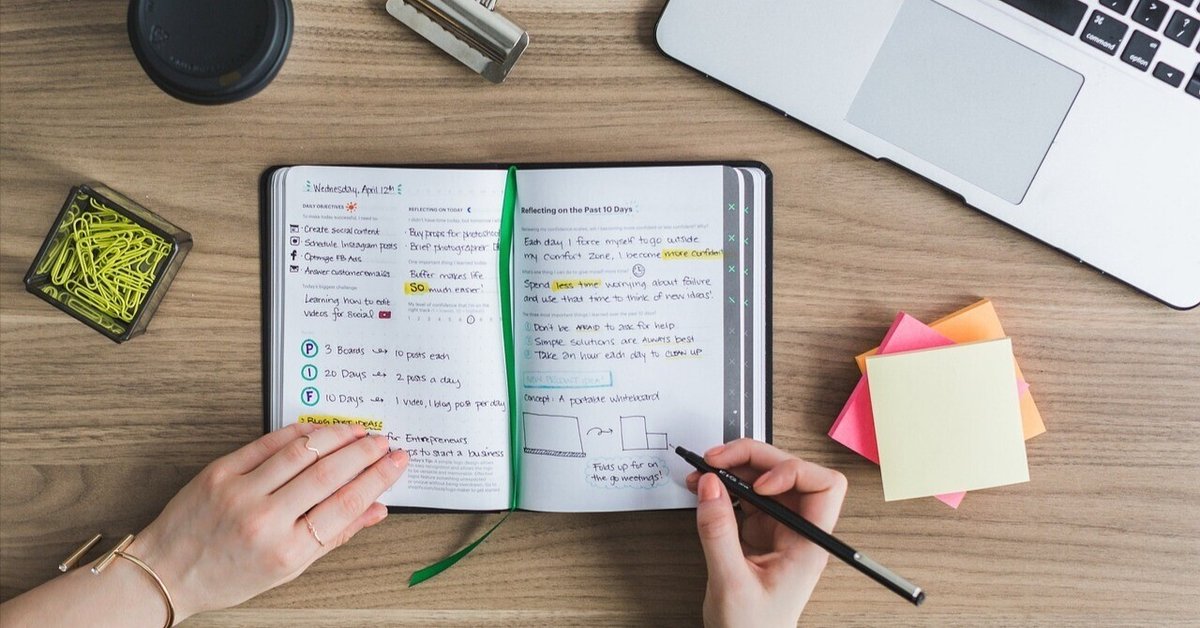 Wednesday, April 12th
DAILY OBJECTIVES
To make today successful, I need to
Create social content
Schedule Instagram posts
Optimize FB Ads
Answer customer emails
Today's biggest challenge
Learning how to edit
videos for social
P 3 Boards → 10 posts each
I 20 Days → 2 posts a day
F 10 Days → 1 video, 1 blog post per day
BLOG POST IDEAS:
for Entrepreneurs
to start a business
REFLECTING ON TODAY
I didn't have time today, but tomorrow I
· Buy props for photoshoot
· Brief photographer
One important thing I learned today
Buffer makes life
SO much easier!
My level of confidence that I'm on the
right track
1 2 3 4 5 6 7 8
Today's Tip: A simple logo design allows
Reflecting on the Past 10 Days
Each day I force myself to go outside
my comfort zone, I become more confident
What's one thing I can do to give myself more time?
Spend less time worrying about failure
and use that time to think of new ideas!
The three most important things I learned
1 Don't be AFRAID to ask for help
2 Simple solutions are ALWAYS best
3 Take an hour each day to CLEAN UP
NEW PRODUCT IDEA!
Concept: A portable whiteboard
Folds up for on
the go meetings!
⌘
command
option